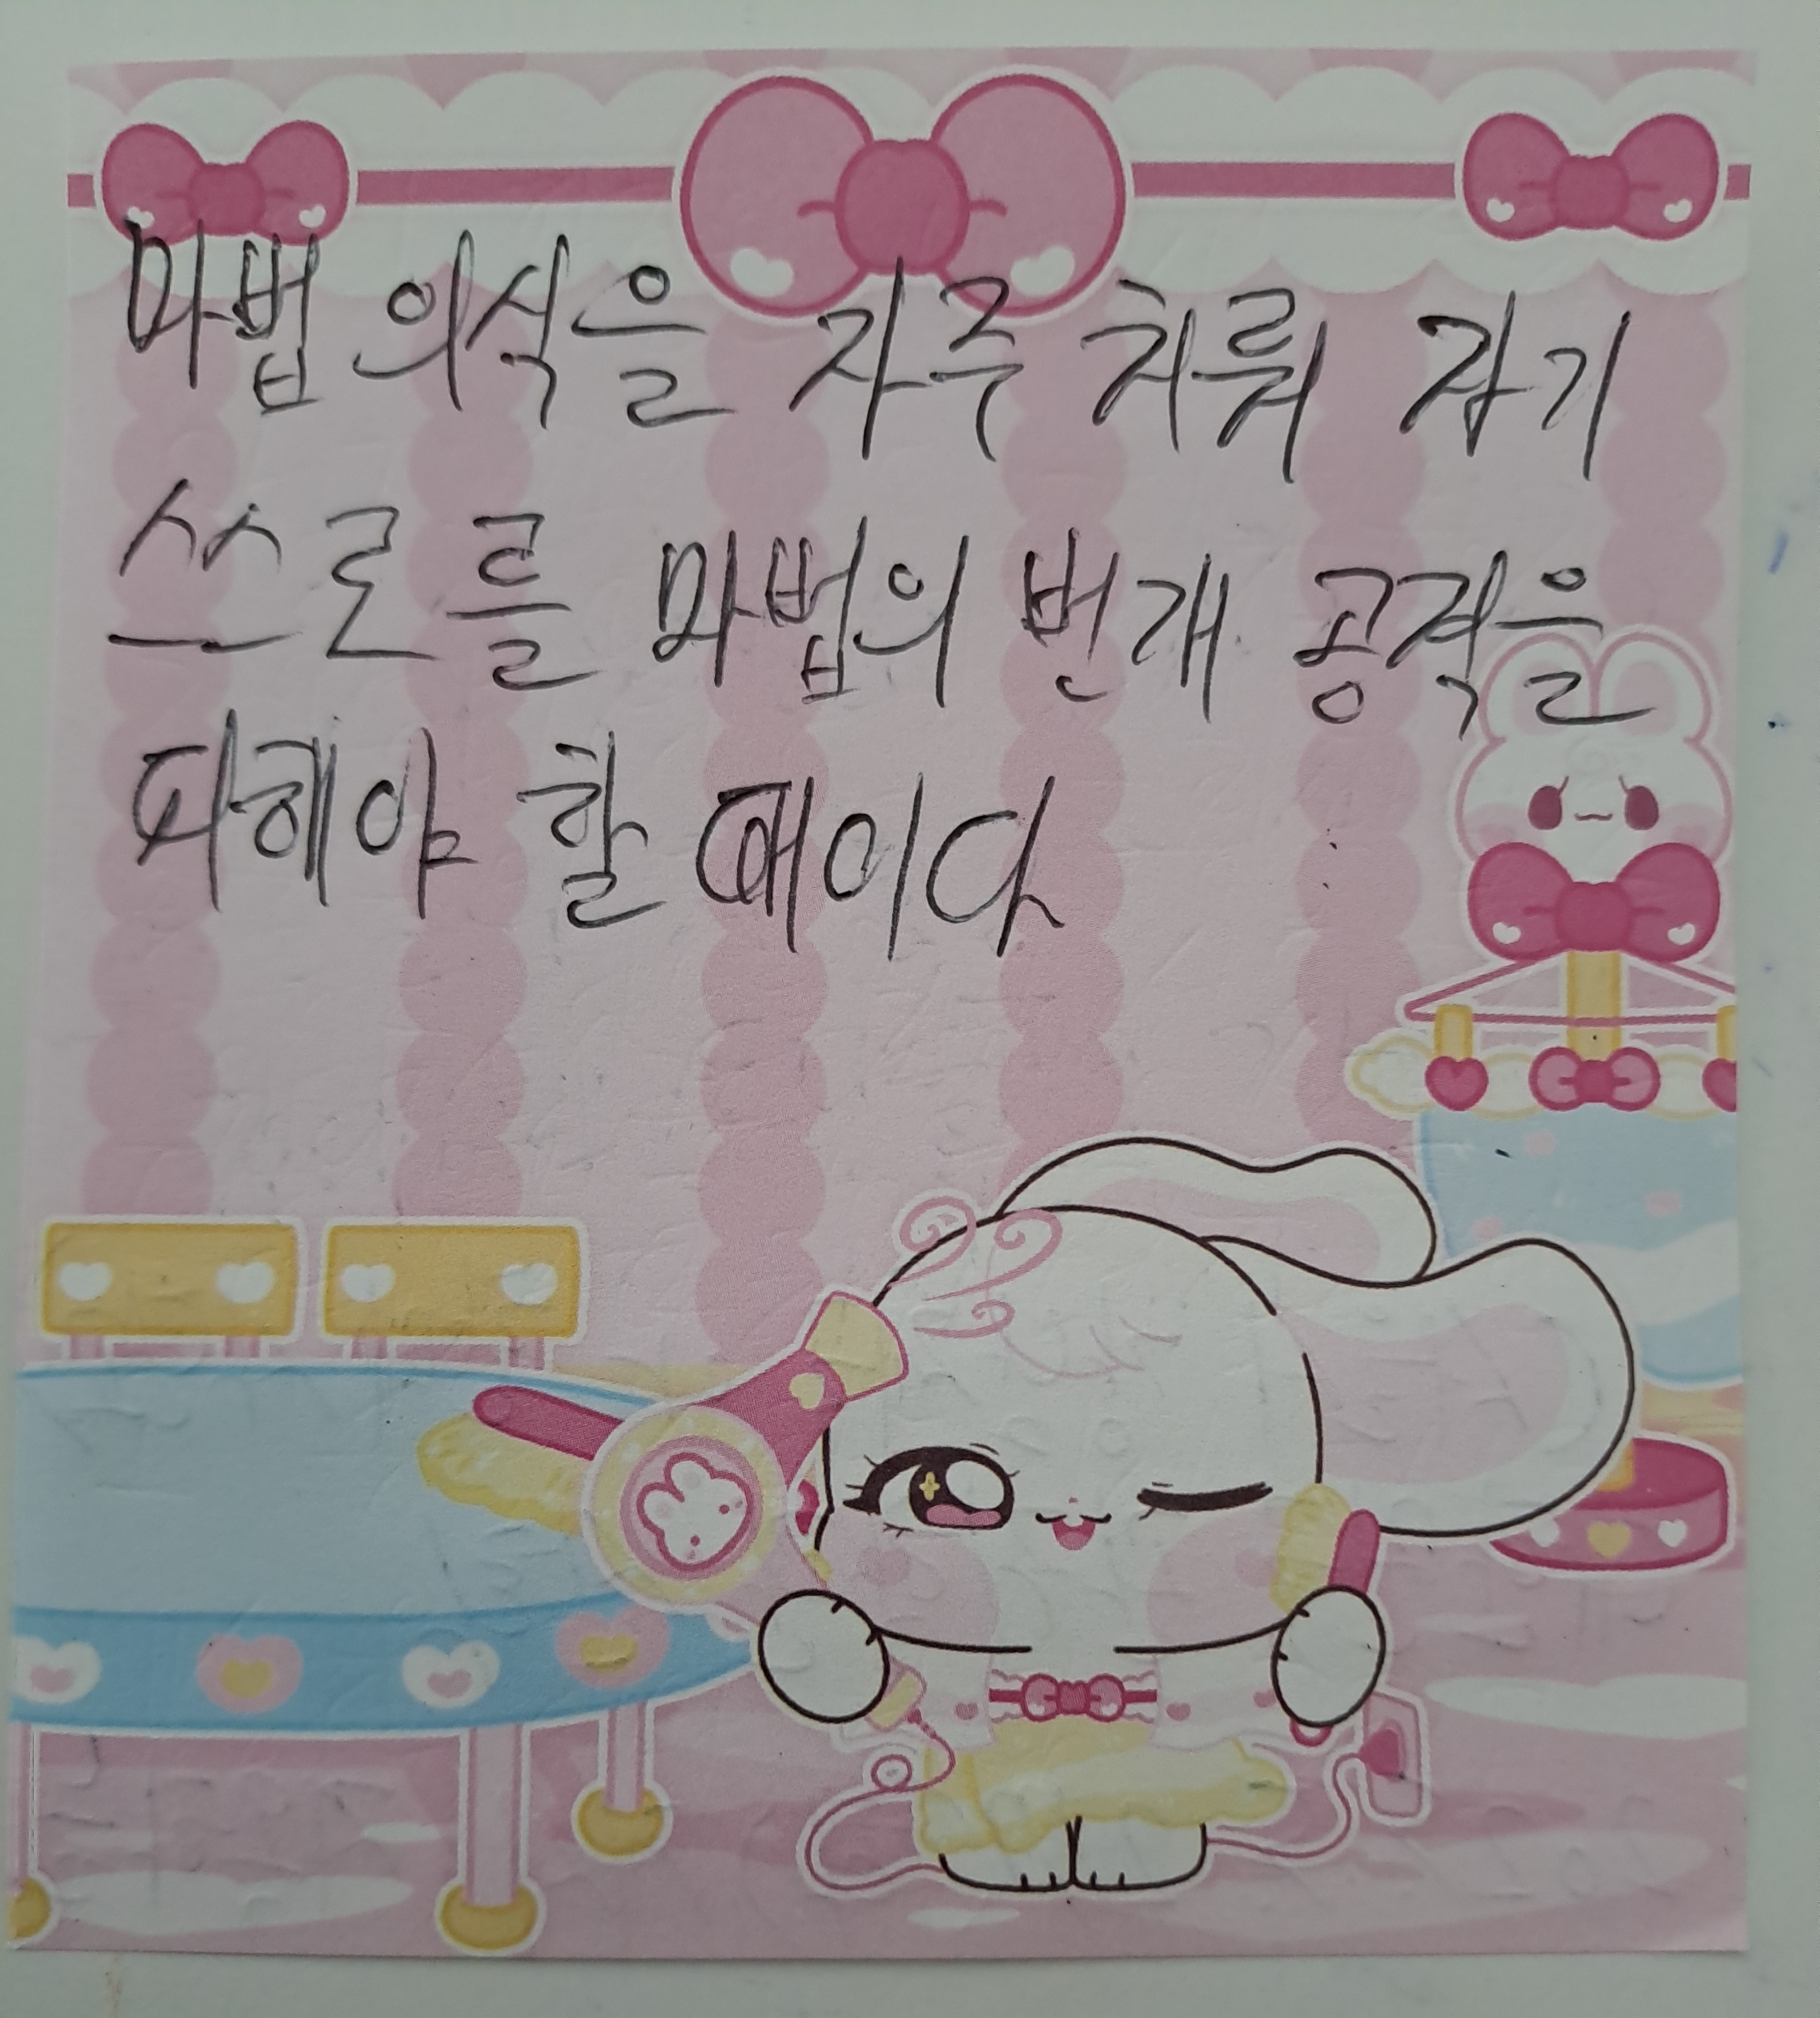 마법 의식을 자주 치뤄 감기
쓰로를 마법의 번개 공격을
피해야 할 때이다